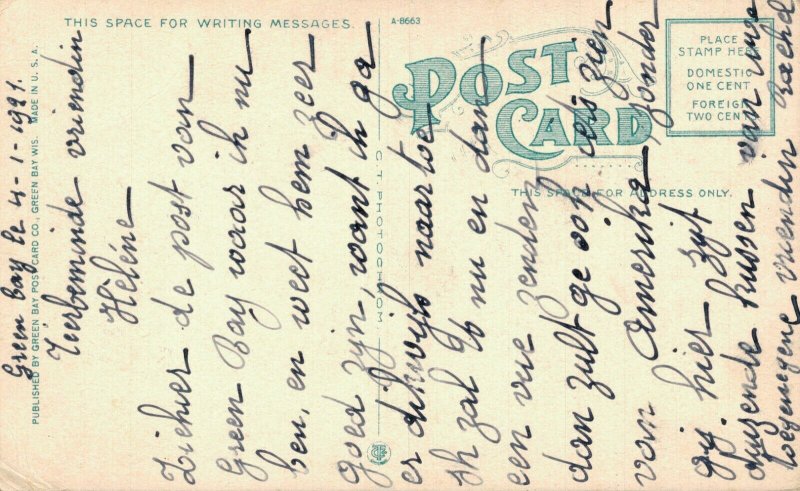 THIS SPACE FOR WRITING MESSAGES.
A-8663
POST CARD
PLACE
STAMP HERE
DOMESTIC
ONE CENT
FOREIGN
TWO CENTS
THIS SPACE FOR ADDRESS ONLY.
PUBLISHED BY GREEN BAY POST CARD CO., GREEN BAY WIS. MADE IN U. S. A.
C. T. PHOTOCHROM
Green Bay le 4-1-1921.
Zeerbeminde vriendin
Heléne
Ziehier de post van
Green Bay waar ik nu
ben, en weet hem zeer
goed zijn, want ik ga
er dikwijls naar toe
Ik zal U nu en dan
een vue zenden,
dan zult ge ook iets zien
van Amerika, zonder
gij hier zijt
duizende kussen van uwe
toegenegene vriendin